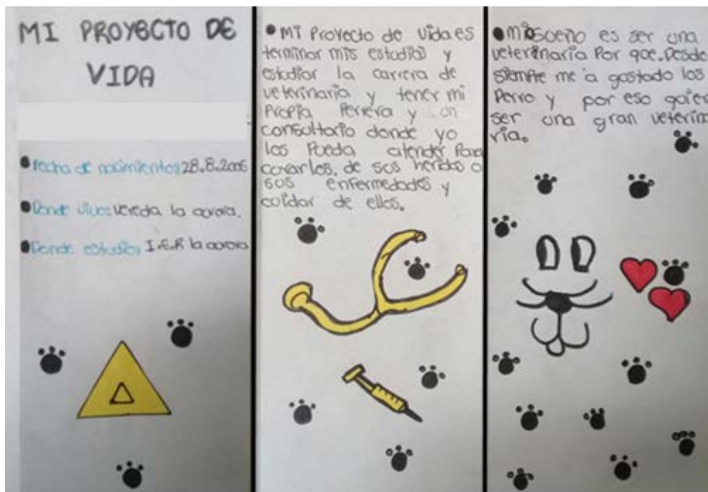 MI PROYECTO DE
VIDA
fecha de nacimientos 28.8.2006
Donde vives vereda la aurora.
Donde estudias I.E.R la aurora
Mi Proyecto de vida es
terminar mis estudios y
estudiar la carrera de
veterinaria y tener mi
Propia Perrera y un
consultorio donde yo
los Pueda atender Para
curarlos. de sus heridas o
sus enfermedades y
cuidar de ellos.
mi sueño es ser una
veterinaria Por que. Desde
siempre me a gustado los
Perro y por eso quier
ser una gran veterina
ria.